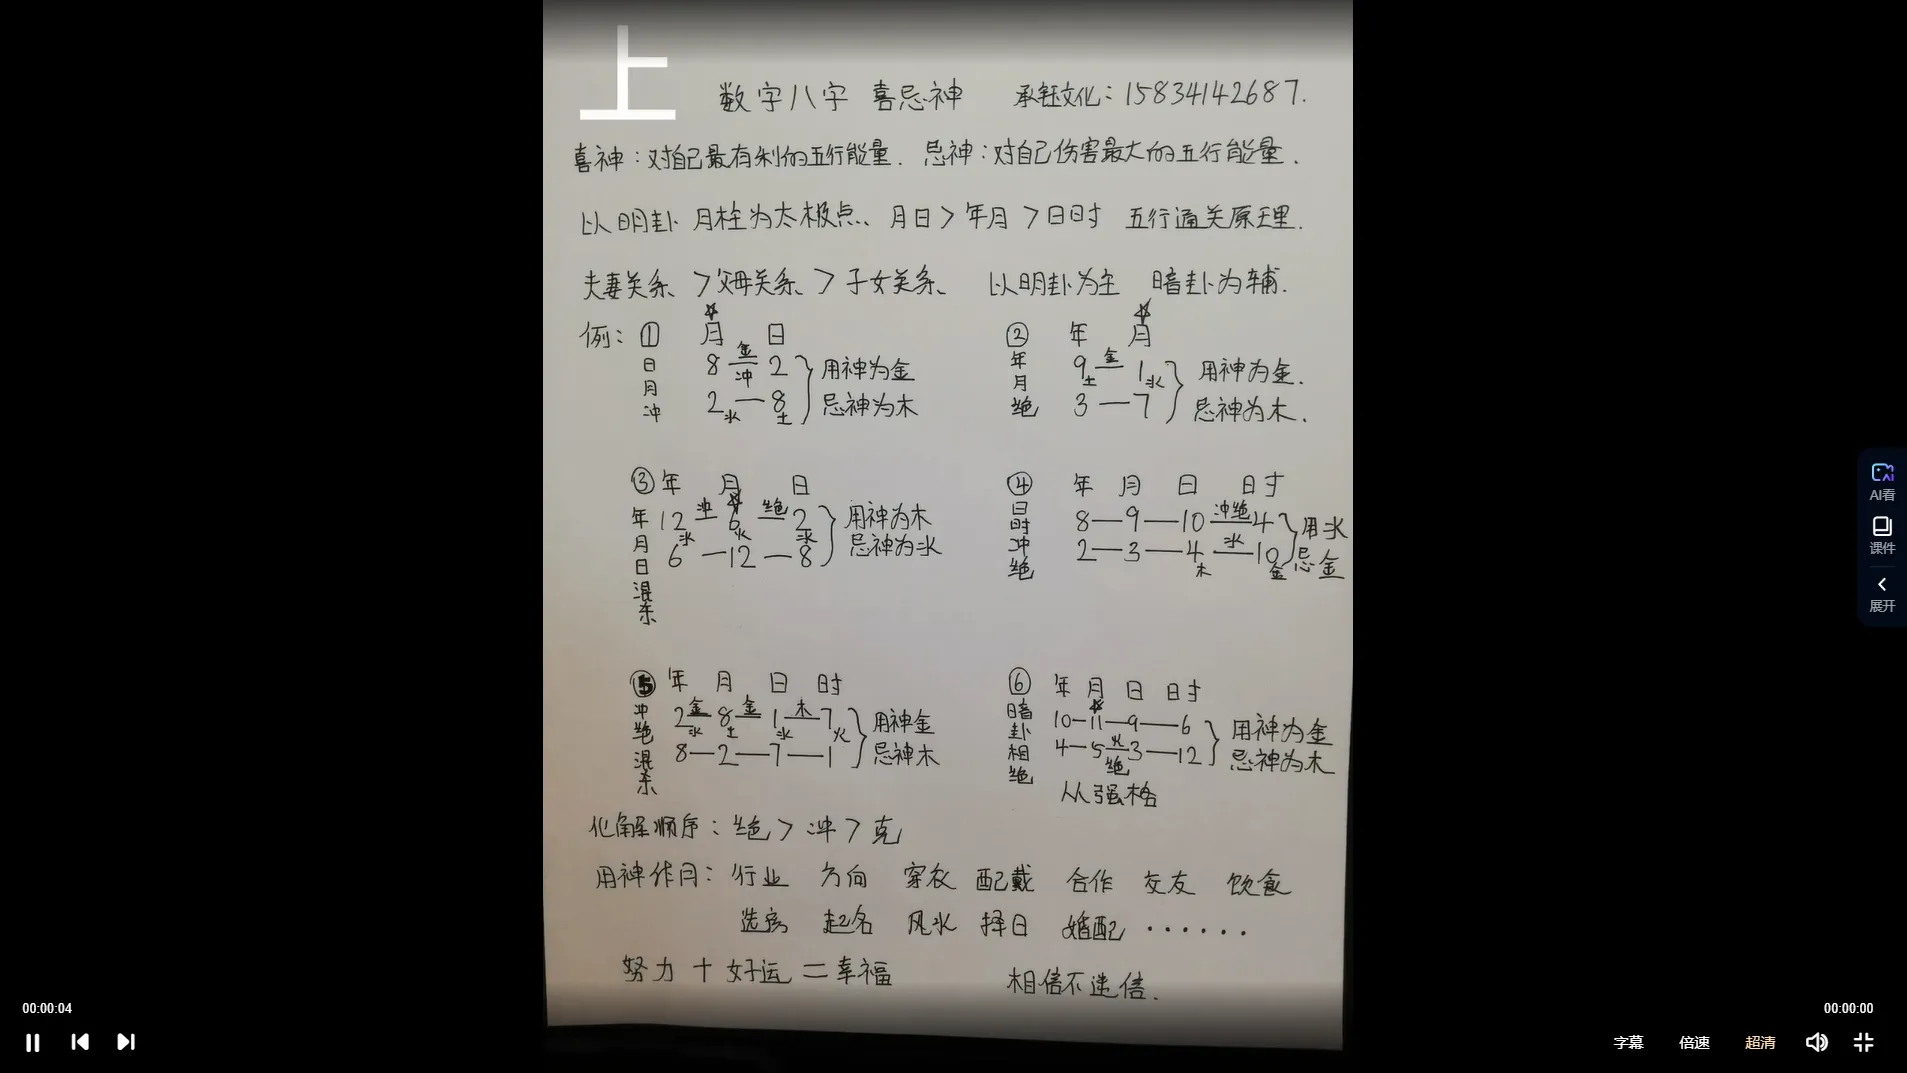 上
数字八字 喜忌神 承钰文化：15834142687.
喜神：对自己最有利的五行能量. 忌神：对自己伤害最大的五行能量.
以明卦 月柱为太极点、月日＞年月＞日时 五行通关原理.
夫妻关系 ＞父母关系＞子女关系、 以明卦为主 暗卦为辅.
例：① 月 日
日月冲
8 金 冲 2
2水 — 8土
用神为金
忌神为木
② 年 月
年月绝
9土 金 — 1水
3 — 7
用神为金.
忌神为木.
③ 年 月 日
年月日混杂
12水 冲 — 6火 绝 — 2水
6 — 12 — 8
用神为木
忌神为水
④ 年 月 日 时
日时冲绝
8 — 9 — 10 冲绝 4
2 — 3 — 4木 水 — 10金
用水
忌金
⑤ 年 月 日 时
冲绝混杂
2水 金 — 8土 金 — 1水 木 — 7火
8 — 2 — 7 — 1
用神金
忌神木
⑥ 年 月 日 时
暗卦相绝
10 — 11 — 9 — 6
4 — 5 火 绝 3 — 12
用神为金
忌神为木
从强格
化解顺序：绝＞冲＞克
用神作用：行业 方向 穿衣 配戴 合作 交友 饮食
选房 起名 风水 择日 婚配 ······
努力＋好运＝幸福 相信不迷信.
AI看
课件
展开
00:00:04
00:00:00
字幕 倍速 超清